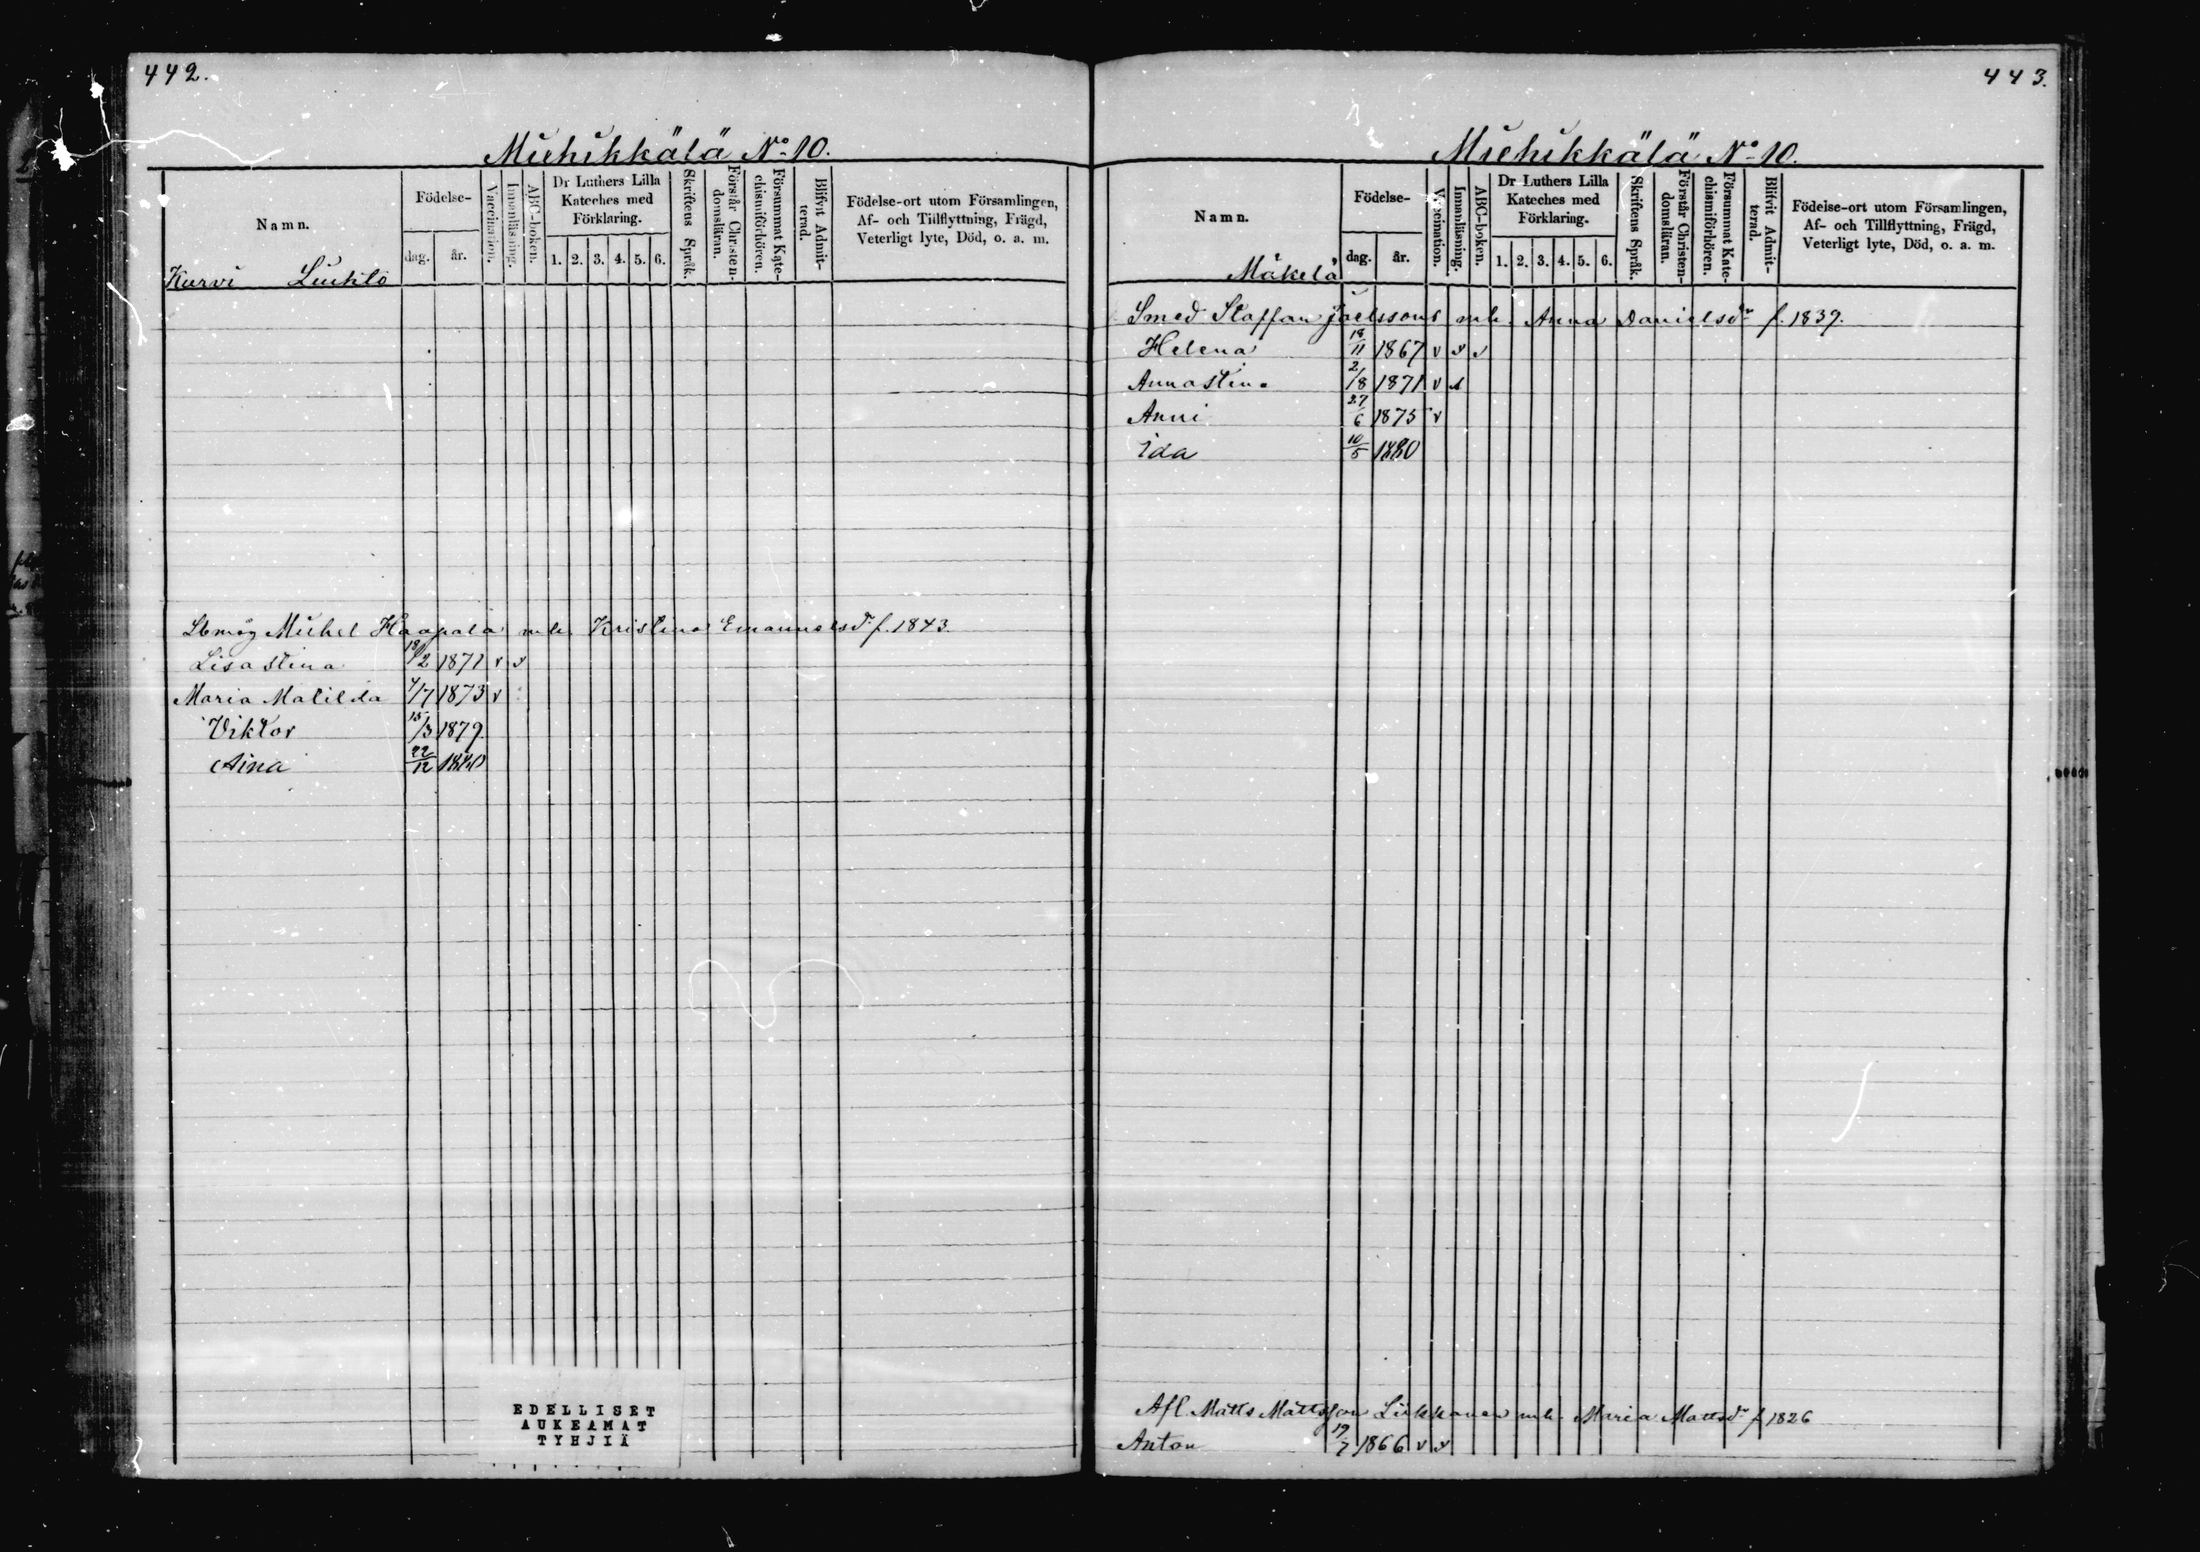 442.
Miehikkälä No 10.
Namn.
Födelse-
dag.
år.
Vaccination.
Innanläsning.
ABC-boken.
Dr Luthers Lilla
Kateches med
Förklaring.
1. 2. 3. 4. 5. 6.
Skriftens Språk.
Förstår Christen-
domsläran.
Försummat Kate-
chismiförhören.
Blifvit Admit-
terad.
Födelse-ort utom Församlingen,
Af- och Tillflyttning, Frägd,
Veterligt lyte, Död, o. a. m.
Kurvi
Michel Haapala mh. Kristina Emanuelsdr f. 1843.
Lisastina 18/2 1871 v v
Maria Matilda 7/7 1873 v
Viktor 15/3 1879.
Aina 22/12 1880
EDELLISET
AUKEAMAT
TYHJIÄ
443.
Miehikkälä No 10.
Namn.
Födelse-
dag.
år.
Vaccination.
Innanläsning.
ABC-boken.
Dr Luthers Lilla
Kateches med
Förklaring.
1. 2. 3. 4. 5. 6.
Skriftens Språk.
Förstår Christen-
domsläran.
Försummat Kate-
chismiförhören.
Blifvit Admit-
terad.
Födelse-ort utom Församlingen,
Af- och Tillflyttning, Frägd,
Veterligt lyte, Död, o. a. m.
Mäkelä
Smed Staffan mh. Anna Danielsdr f. 1839.
Helena 18/11 1867 v v v
Annastina 2/8 1871 v v
Anni 27/6 1875 v
Ida 10/5 1880
Afl. Matts Mattsson mh. Maria Mattsdr f. 1826
Anton 19/7 1866 v v